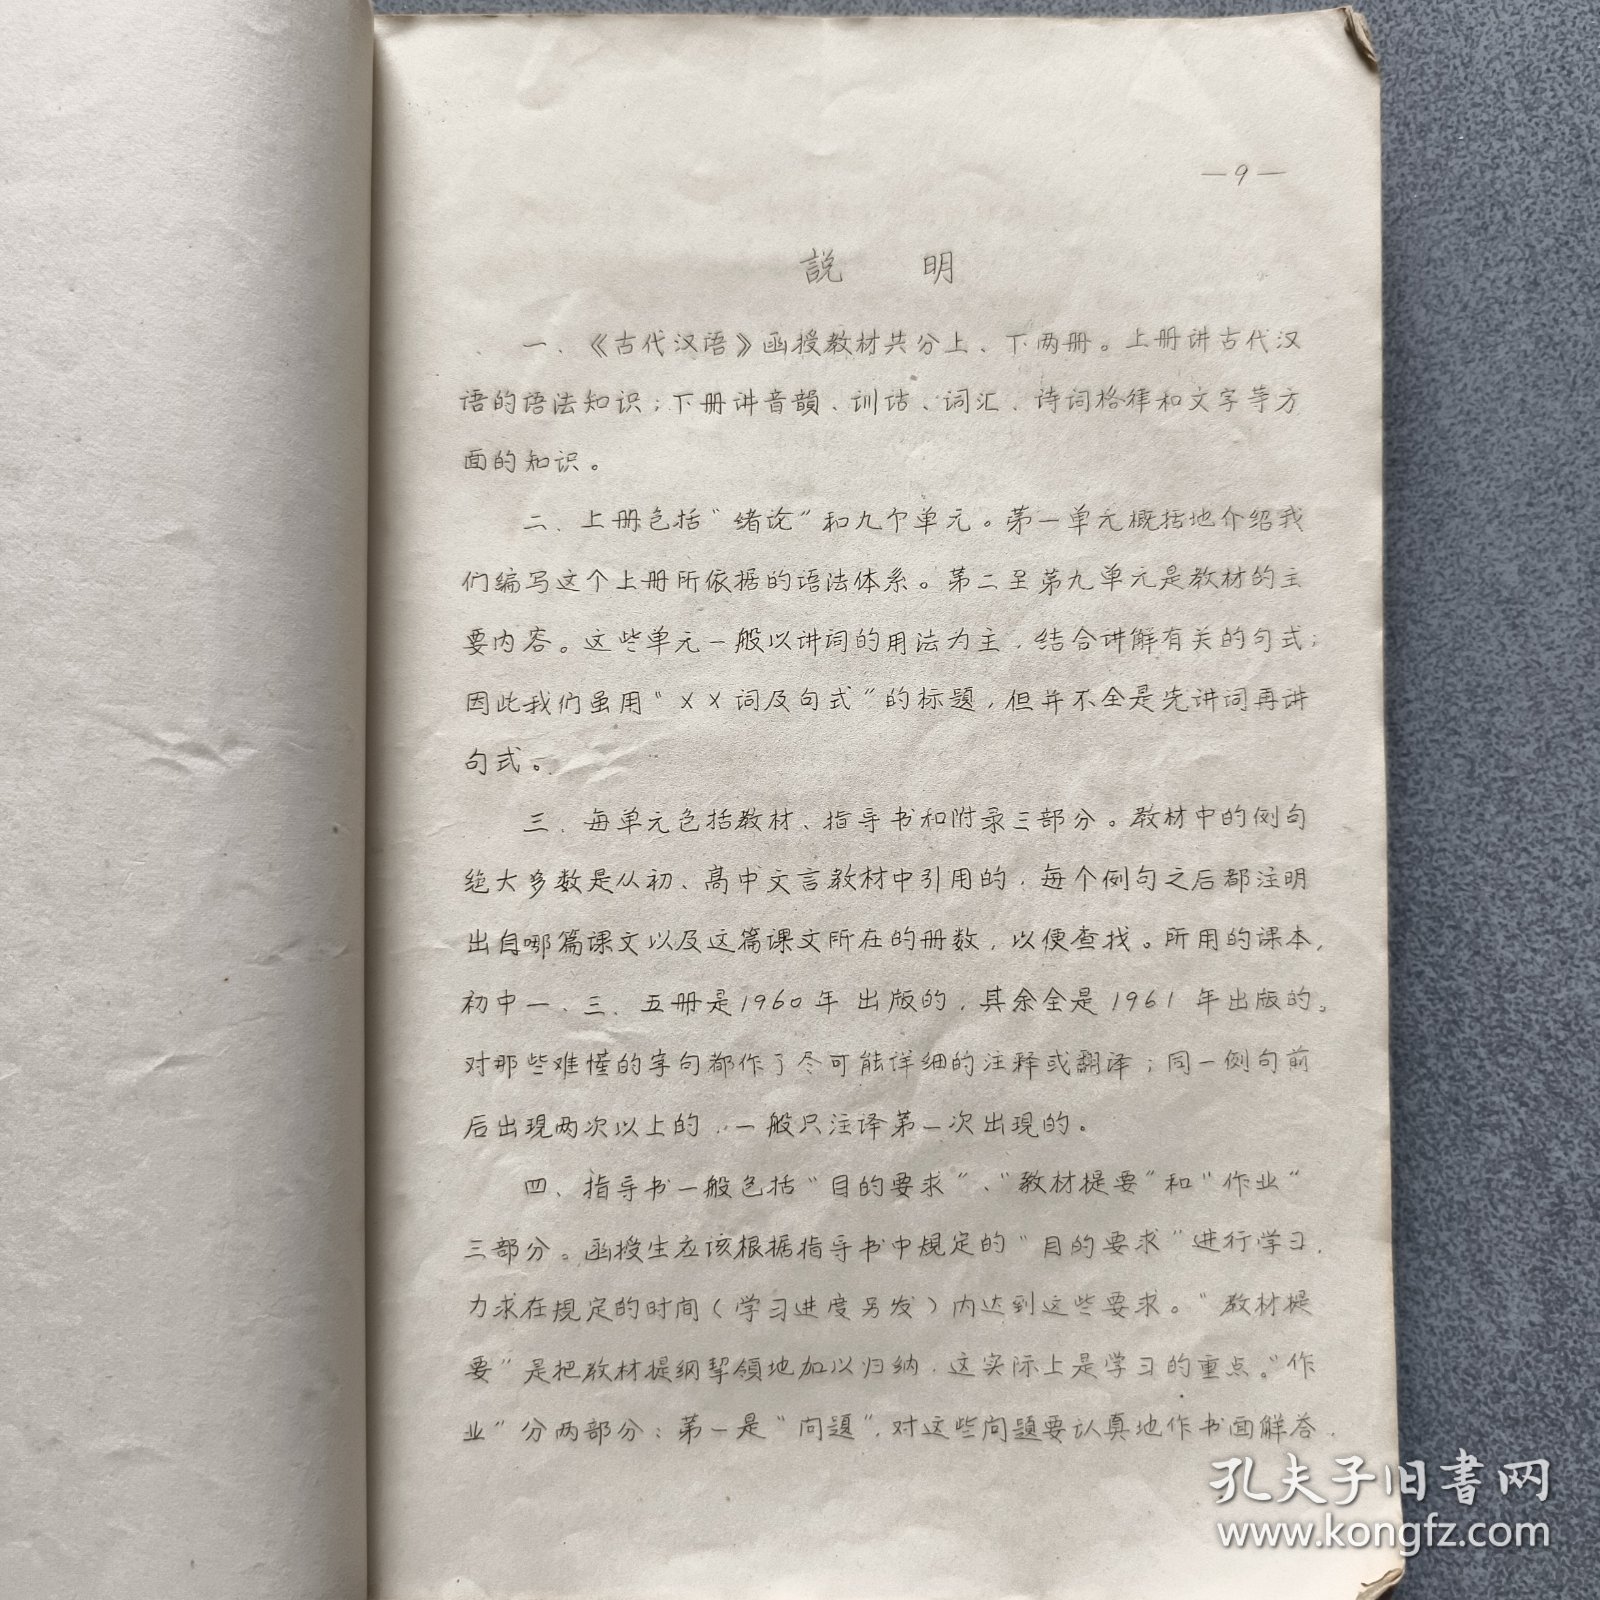 —9—
説 明
一、《古代汉语》函授教材共分上、下两册。上册讲古代汉
语的语法知识；下册讲音韻、训诂、词汇、诗词格律和文字等方
面的知识。
二、上册包括“绪论”和九个单元。第一单元概括地介绍我
们编写这个上册所依据的语法体系。第二至第九单元是教材的主
要内容。这些单元一般以讲词的用法为主，结合讲解有关的句式；
因此我们虽用“××词及句式”的标题，但并不全是先讲词再讲
句式。
三、每单元包括教材、指导书和附录三部分。教材中的例句
绝大多数是从初、高中文言教材中引用的，每个例句之后都注明
出自哪篇课文以及这篇课文所在的册数，以便查找。所用的课本，
初中一、三、五册是1960年出版的，其余全是1961年出版的。
对那些难懂的字句都作了尽可能详细的注释或翻译；同一例句前
后出现两次以上的，一般只注译第一次出现的。
四、指导书一般包括“目的要求”、“教材提要”和“作业”
三部分。函授生应该根据指导书中规定的“目的要求”进行学习，
力求在规定的时间（学习进度另发）内达到这些要求。“教材提
要”是把教材提纲挈領地加以归纳，这实际上是学习的重点。“作
业”分两部分：第一是“问题”，对这些问题要认真地作书面解答，
孔夫子旧书网
www.kongfz.com